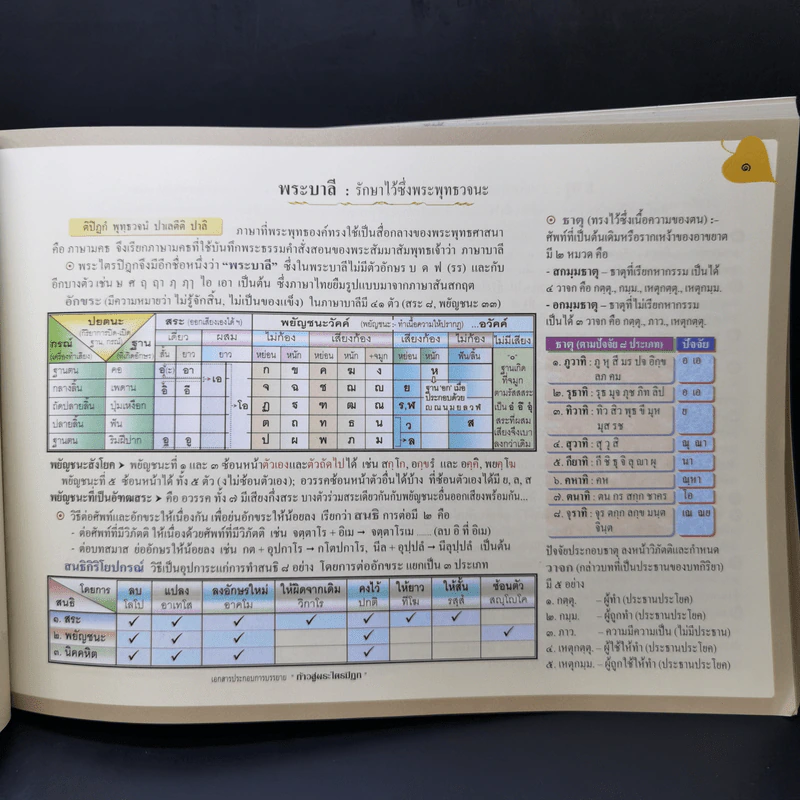 ๑
พระบาลี : รักษาไว้ซึ่งพระพุทธวจนะ
ติปิฏกํ พุทฺธวจนํ ปาเลตีติ ปาลิ ภาษาที่พระพุทธองค์ทรงใช้เป็นสื่อกลางของพระพุทธศาสนา
คือ ภาษามคธ จึงเรียกภาษามคธที่ใช้บันทึกพระธรรมคำสั่งสอนของพระสัมมาสัมพุทธเจ้าว่า ภาษาบาลี
⊙ พระไตรปิฎกจึงมีอีกชื่อหนึ่งว่า “พระบาลี” ซึ่งในพระบาลีไม่มีตัวอักษร บ ด ฟ (รร) และกับ
อีกบางตัว เช่น ษ ศ ฤ ฤๅ ฦ ฦๅ ใอ เอา เป็นต้น ซึ่งภาษาไทยยืมรูปแบบมาจากภาษาสันสกฤต
อักขระ (มีความหมายว่า ไม่รู้จักสิ้น, ไม่เป็นของแข็ง) ในภาษาบาลีมี ๔๑ ตัว (สระ ๘, พยัญชนะ ๓๓)
ปยตนะ สระ (ออกเสียงเองได้ ฯ) พยัญชนะวัคค์ (พยัญชนะ:- ทำเนื้อความให้ปรากฏ) ...อวัคค์
(กิริยาการปิด-เปิด ฐาน, กรณ์) เดี่ยว ผสม ไม่ก้อง เสียงก้อง เสียงก้อง ไม่ก้อง ไม่มีเสียง
กรณ์ (เครื่องทำเสียง) ฐาน (ที่เกิดอักษร) สั้น ยาว ยาว หย่อน หนัก หย่อน หนัก +จมูก หย่อน หนัก ฟัน/ลิ้น
ฐานตน คอ อ(ะ) อา ก ข ค ฆ ง ห
กลางลิ้น เพดาน อิ อี เอ จ ฉ ช ฌ ญ ย
ถัดปลายลิ้น ปุ่มเหงือก โอ ฏ ฐ ฑ ฒ ณ ร,ฬ
ปลายลิ้น ฟัน ต ถ ท ธ น ว ส
ฐานตน ริมฝีปาก อุ อู ป ผ พ ภ ม ล
ฐาน 'อก' เมื่อ
ประกอบด้วย
ญ ณ น ม ย ล ว ฬ
ฐานเกิด
ที่จมูก
ตามรัสสสระ
เป็น อํ อึ อุํ
สระที่ผสม
เสียงจึงเบา
ลงกว่าเดิม
พยัญชนะสังโยค ➤ พยัญชนะที่ ๑ และ ๓ ซ้อนหน้าตัวเองและตัวถัดไปได้ เช่น สกฺโก, อกฺขรํ และ อคฺคิ, พยคฺโฆ
พยัญชนะที่ ๕ ซ้อนหน้าได้ ทั้ง ๕ ตัว (ง ไม่ซ้อนตัวเอง); อวรรคซ้อนหน้าตัวอื่นได้บ้าง ที่ซ้อนตัวเองได้มี ย, ล, ส
พยัญชนะที่เป็นอัฑฒสระ ➤ คือ อวรรค ทั้ง ๗ มีเสียงกึ่งสระ บางตัวร่วมสระเดียวกับพยัญชนะอื่นออกเสียงพร้อมกัน...
⊙ วิธีต่อศัพท์และอักขระให้เนื่องกัน เพื่อย่นอักขระให้น้อยลง เรียกว่า สนธิ การต่อมี ๒ คือ
- ต่อศัพท์ที่มีวิภัตติ ให้เนื่องด้วยศัพท์ที่มีวิภัตติ เช่น จตฺตาโร + อิเม → จตฺตาโรเม ..... (ลบ อิ ที่ อิเม)
- ต่อบทสมาส ย่ออักษรให้น้อยลง เช่น กต + อุปกาโร → กโตปกาโร, นีล + อุปฺปลํ → นีลุปฺปลํ เป็นต้น
สนธิกิริโยปกรณ์ วิธีเป็นอุปการะแก่การทำสนธิ ๘ อย่าง โดยการต่ออักขระ แยกเป็น ๓ ประเภท
โดยการ ลบ แปลง ลงอักษรใหม่ ให้ผิดจากเดิม คงไว้ ให้ยาว ให้สั้น ซ้อนตัว
สนธิ โลโป อาเทโส อาคโม วิกาโร ปกติ ทีโฆ รสฺสํ สญฺโญโค
๑. สระ ✓ ✓ ✓ ✓ ✓ ✓ ✓
๒. พยัญชนะ ✓ ✓ ✓ ✓ ✓
๓. นิคคหิต ✓ ✓ ✓ ✓
เอกสารประกอบการบรรยาย " ก้าวสู่พระไตรปิฎก "
⊙ ธาตุ (ทรงไว้ซึ่งเนื้อความของตน) :-
ศัพท์ที่เป็นต้นเดิมหรือรากเหง้าของอาขยาต
มี ๒ หมวด คือ
- สกมฺมธาตุ – ธาตุที่เรียกหากรรม เป็นได้
๔ วาจก คือ กตฺตุ., กมฺม., เหตุกตฺตุ., เหตุกมฺม.
- อกมฺมธาตุ – ธาตุที่ไม่เรียกหากรรม
เป็นได้ ๓ วาจก คือ กตฺตุ., ภาว., เหตุกตฺตุ.
ธาตุ (ตามปัจจัย ๘ ประเภท) ปัจจัย
๑. ภูวาทิ : ภู หุ สี มร ปจ อิกฺข อ เอ
ลภ คม
๒. รุธาทิ : รุธ มุจ ภุช ภิท ลิป อ เอ
๓. ทิวาทิ : ทิว สิว พุธ ขี มุห ย
มุส รช
๔. สุวาทิ : สุ วุ สิ ณุ ณา
๕. กียาทิ : กี ชิ ธุ จิ ลุ ญา ผุ นา
๖. คหาทิ : คห ณฺหา
๗. ตนาทิ : ตน กร สกฺก ชาคร โอ
๘. จุราทิ : จุร ตกฺก ลกฺข มนฺต เณ ณย
จินฺต
ปัจจัยประกอบธาตุ ลงหน้าวิภัตติและกำหนด
วาจก (กล่าวบทที่เป็นประธานของบทกิริยา)
มี ๕ อย่าง
๑. กตฺตุ. – ผู้ทำ (ประธานประโยค)
๒. กมฺม. – ผู้ถูกทำ (ประธานประโยค)
๓. ภาว. – ความมีความเป็น (ไม่มีประธาน)
๔. เหตุกตฺตุ. – ผู้ใช้ให้ทำ (ประธานประโยค)
๕. เหตุกมฺม. – ผู้ถูกใช้ให้ทำ (ประธานประโยค)